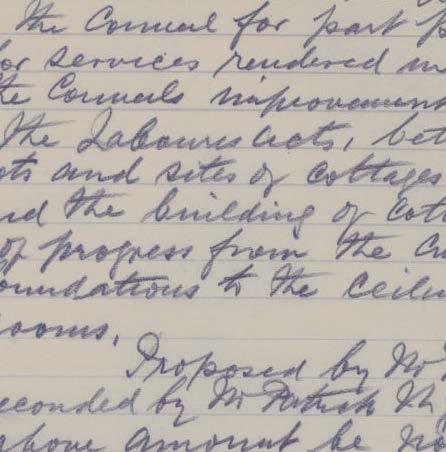 the Council for part p
or services rendered in
the Councils improvement
the Labourers acts, bet
ots and sites of cottages
nd the building of cot
of progress from the cu
oundations to the ceilin
ooms.
Proposed by Mr
econded by Mr Patrick Mc
above amount be no